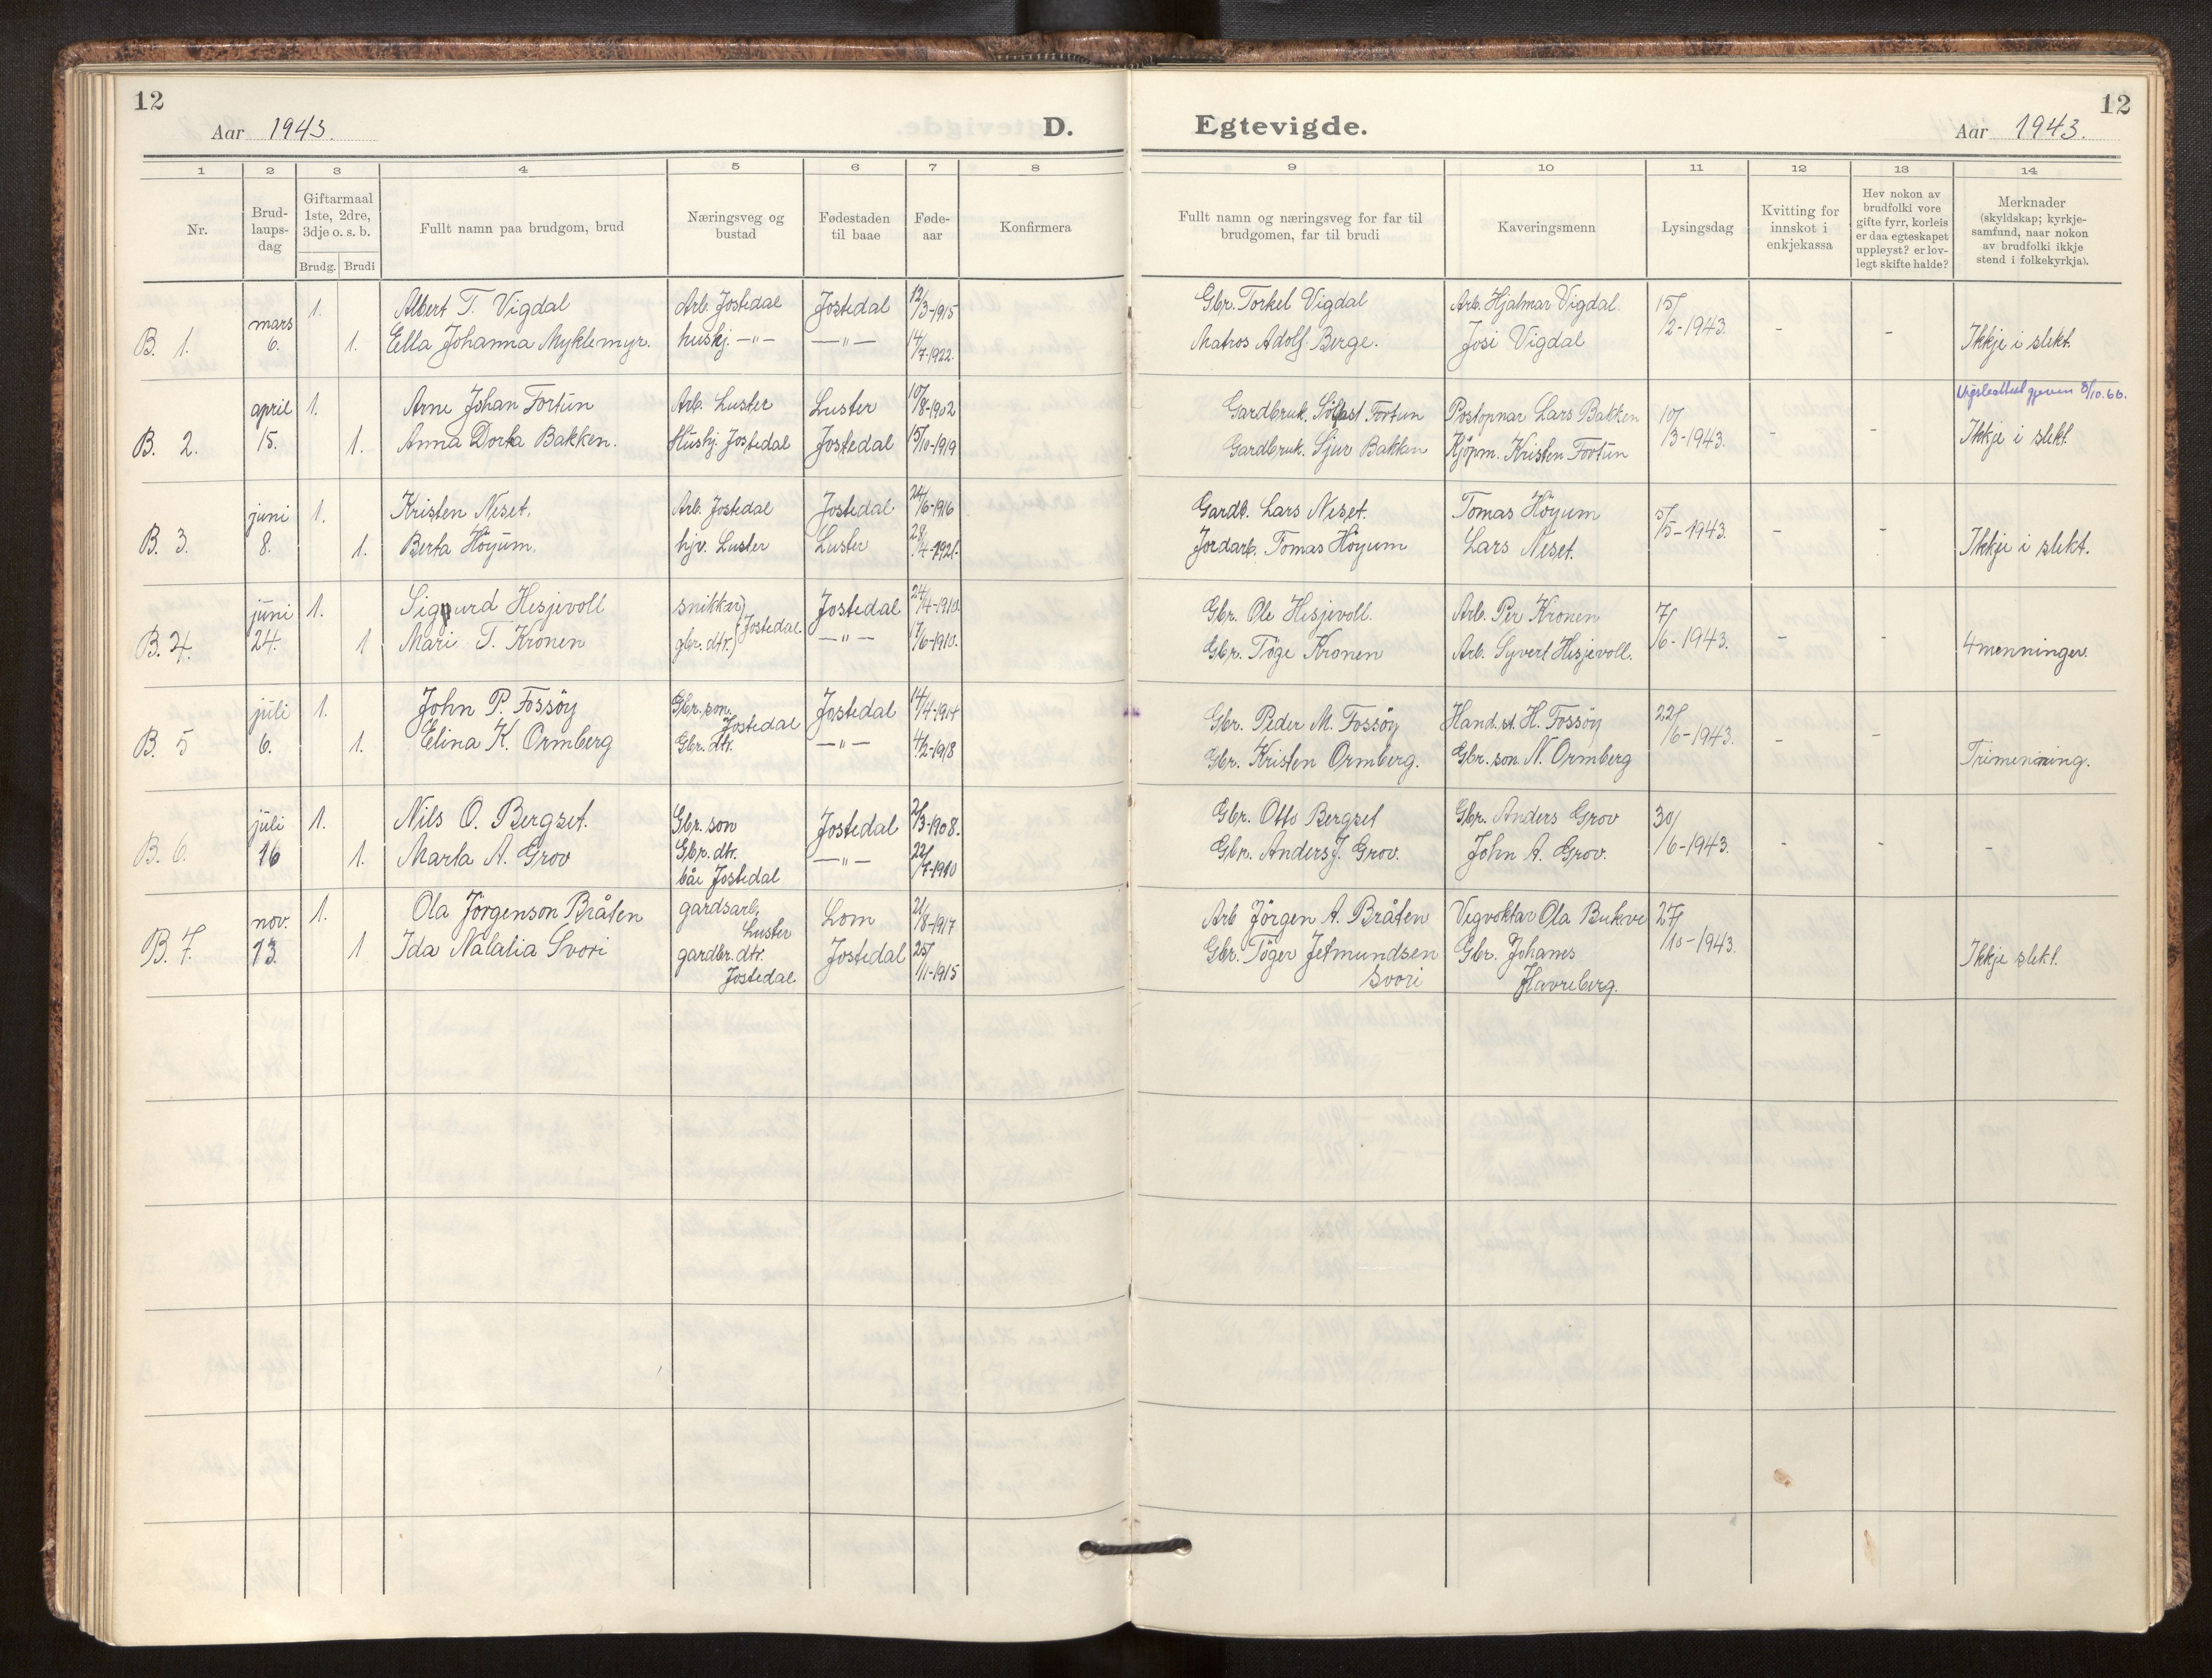 12
Aar 1943.
D.
1 2 3 4 5 6 7 8
Nr.
Brud-
laups-
dag
Giftarmaal
1ste, 2dre,
3dje o. s. b.
Brudg. Brudi
Fullt namn paa brudgom, brud
Næringsveg og
bustad
Fødestaden
til baae
Føde-
aar
Konfirmera
mars 1. Albert T. Vigdal Arb. Jostedal Jostedal 12/3-1915
B. 1. 6. 1. Ella Johanna Myklemyr. huskj. —"— —"— 14/7-1922.
april 1. Arne Johan Fortun Arb. Luster Luster 10/8-1902
B. 2. 15. 1. Anna Dorta Bakken. Huskj. Jostedal Jostedal 15/10-1919
juni 1. Kristen Neset. Arb. Jostedal Jostedal 24/6-1916
B. 3. 8. 1. Berta Höyum. hjv. Luster Luster 28/4-1921.
juni 1. Sigurd Hesjevoll snikkar Jostedal. Jostedal 24/4-1910.
B. 4. 24. 1 Mari T. Kronen gbr. dtr. —"— 17/6-1910.
juli 1. John P. Fossöy Gbr. son. Jostedal 14/4-1914
Jostedal
B. 5 6. 1. Elina K. Ormberg Gbr. dtr. —"— 4/2-1918
juli 1. Nils O. Bergset. Gbr. son Jostedal 2/3-1908.
B. 6. 16 1. Marta A. Grov Gbr. dtr. —"— 22/7-1910
båe Jostedal
nov. 1. Ola Jörgenson Bråten gardsarb. Lom 21/8-1917
Luster
B. 7. 13. 1 Ida Natalia Svori gardbr. dtr. Jostedal 25/11-1915
Jostedal
12
Egtevigde.
Aar 1943.
9 10 11 12 13 14
Fullt namn og næringsveg for far til
brudgomen, far til brudi
Kaveringsmenn
Lysingsdag
Kvitting for
innskot i
enkjekassa
Hev nokon av
brudfolki vore
gifte fyrr, korleis
er daa egteskapet
uppløyst? er lov-
legt skifte halde?
Merknader
(skyldskap; kyrkje-
samfund, naar nokon
av brudfolki ikkje
stend i folkekyrkja).
Gbr. Torkel Vigdal Arb. Hjalmar Vigdal. 15/2-1943. - -
Matros Adolf Berge. Josi Vigdal Ikkje i slekt.
Vigsleattest gjeven 8/10.66.
Gardbruk. Sölfast Fortun Postopnar Lars Bakken 10/3-1943. - -
Gardbruk. Sjur Bakken Kjöpm. Kristen Fortun Ikkje i slekt.
Gardb. Lars Neset. Tomas Höyum 5/5-1943. - -
Jordarb. Tomas Höyum Lars Neset. Ikkje i slekt.
Gbr. Ole Hesjevoll. Arb. Per Kronen 7/6-1943. - -
Gbr. Töge Kronen Arb. Syvert Hesjevoll. 4menninger.
Gbr. Peder M. Fossöy Hand.st. H. Fossöy 22/6-1943. - -
Gbr. Kristen Ormberg. Gbr. son N. Ormberg Trimenning.
Gbr. Otto Bergset Gbr. Anders Grov 30/6-1943. - - -
Gbr. Anders J. Grov. John A. Grov.
Arb Jörgen A. Bråten Vegvoktar Ola Bukve 27/10-1943.
Gbr. Töger Jetmundsen Gbr. Johanes Ikkje slekt.
Svori Havreberg.